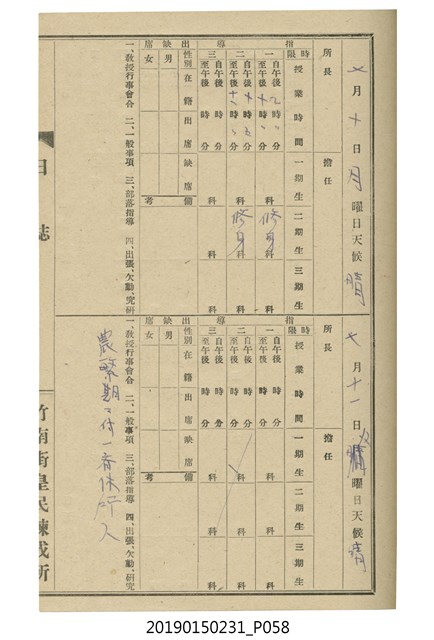 七月十日月曜日天候晴
所長 擔任
時限 授業時間 一期生 二期生 三期生
指導
一 自午後 時 分 至午後 時 分 科 修身科 科
二 自午後 時 分 至午後 時 分 科 修身科 科
三 自午後 時 分 至午後 時 分 科 科 科
出缺席 性別 在籍 出席 缺席 備考
男
女
一、教授行事會合 二、一般事項 三、部落指導 四、出張、欠勤、究研
日誌
七月十一日火曜日天候晴
所長 擔任
時限 授業時間 一期生 二期生 三期生
指導
一 自午後 時 分 至午後 時 分 科 科 科
二 自午後 時 分 至午後 時 分 科 科 科
三 自午後 時 分 至午後 時 分 科 科 科
出缺席 性別 在籍 出席 缺席 備考
男
女
一、教授行事會合 二、一般事項 三、部落指導 四、出張、欠勤、研究
農繁期
竹南街皇民鍊成所
20190150231_P058